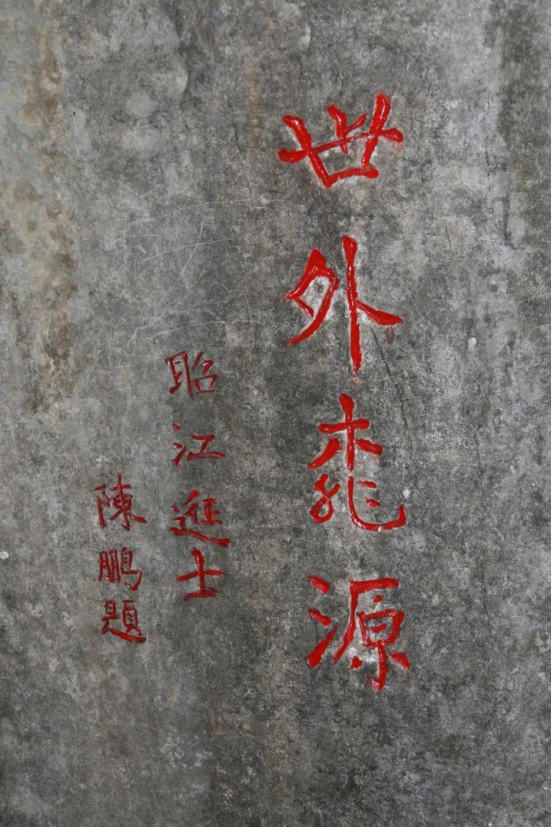 世外桃源
昭江逛士
陳鵬題